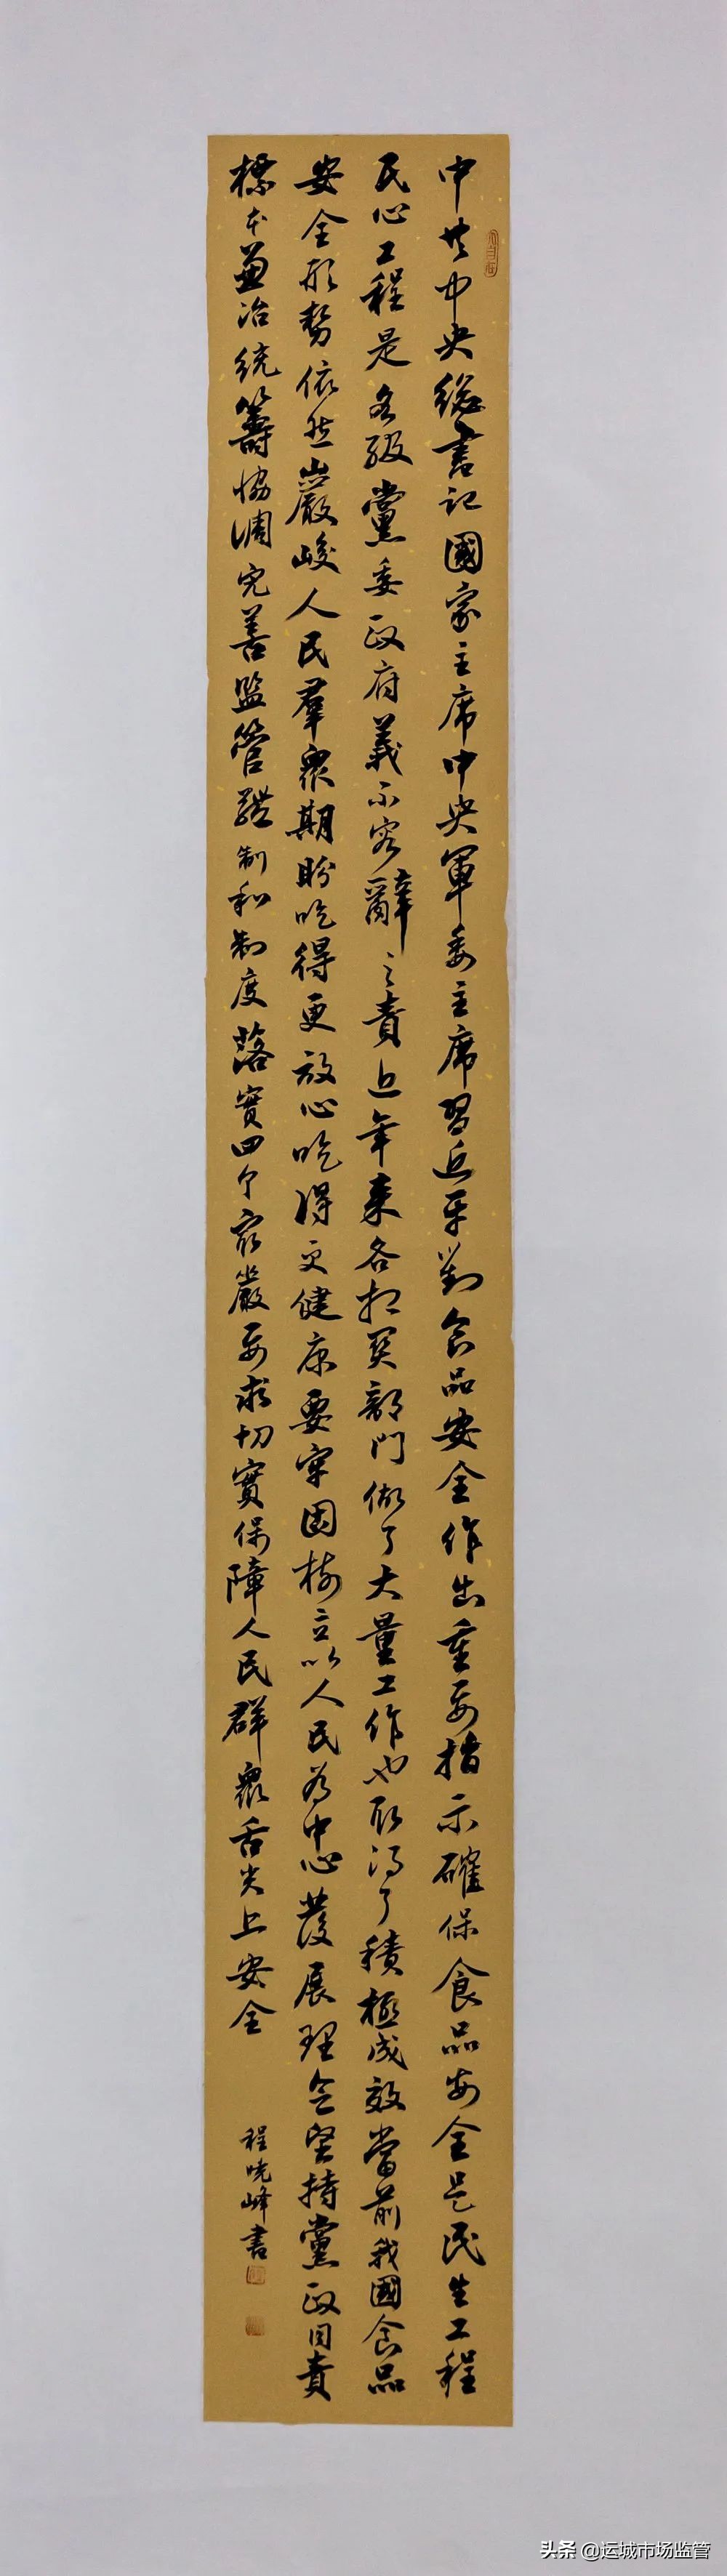 中共中央總書記國家主席中央軍委主席習近平對食品安全作出重要指示確保食品安全是民生工程
民心工程是各級黨委政府義不容辭之責近年來各相關部門做了大量工作也取得了積極成效當前我國食品
安全形勢依然嚴峻人民羣眾期盼吃得更放心吃得更健康要牢固樹立以人民為中心發展理念堅持黨政同責
標本兼治統籌協調完善監管體制和制度落實四个最嚴要求切實保障人民群眾舌尖上安全
程曉峰書
头条 @运城市场监管